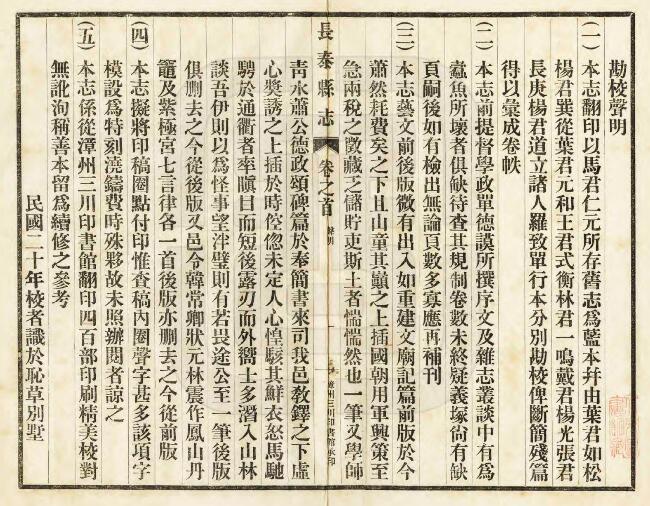 勘校聲明
(一)本志翻印以馬君仁元所存舊志為藍本幷由葉君如松
楊君巽從葉君元和王君式衡林君一鳴戴君楊光張君
長庚楊君道立諸人羅致單行本分別勘校俾斷簡殘篇
得以彙成卷帙
(二)本志前提督學政單德謨所撰序文及雜志叢談中有為
蠹魚所壞者俱缺待查其規制卷數末終疑義塚尙有缺
頁嗣後如有檢出無論頁數多寡應再補刊
(三)本志藝文前後版微有出入如重建文廟記篇前版於今
蕭然耗費矣之下且山童其巓之上插國朝用軍興策至
急兩稅之徵藏之儲貯吏斯土者惴惴然也一筆又學師
長泰縣志
卷之首
聲明
一
漳州三川印書館承印
靑水蕭公德政頌碑篇於奉簡書來司我邑教鐸之下虛
心奬誘之上插於時倥偬未定人心惶駭其鮮衣怒馬馳
騁於通衢者率瞋目而短後露刃而外嚮士多潛入山林
談吾伊則以為怪事望泮璧則有若畏途公至一筆後版
俱刪去之今從後版又邑令韓常卿狀元林震作鳳山丹
竈及紫極宮七言律各一首後版亦刪去之今從前版
(四)本志擬將印稿圈點付印惟查稿內圈聲字甚多該項字
模設為特刻澆鑄費時殊夥故未照辦閱者諒之
(五)本志係從漳州三川印書館翻印四百部印刷精美校對
無訛洵稱善本留為續修之參考
民國二十年校者識於恥草別墅